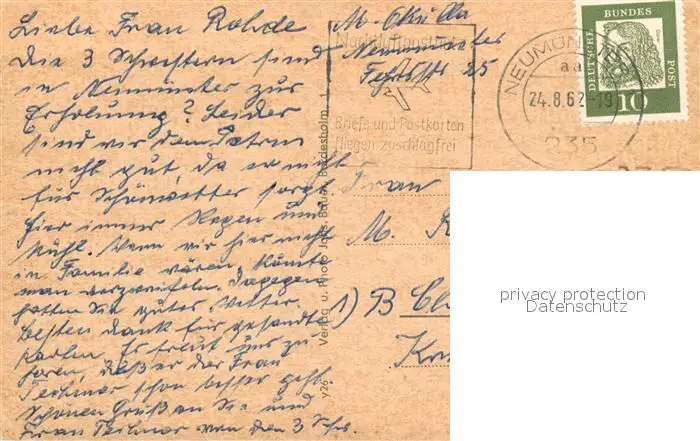 Liebe Frau Rohde
Die 3 Schwestern sind
in Neumünster zur
Erholung? Leider
sind wir dem Petrus
nicht gut, da er nicht
für Schönwetter sorgt
hier immer Regen und
kühl. Wenn wir hier nicht
in Familie wären, könnte
man verzweifeln. Dagegen
hatten Sie gutes Wetter.
Besten Dank für gesandte
Karten. Es freut uns zu
hören, daß es der Frau
schon besser geht.
Schönen Gruß an Sie und
Frau von den 3 Schs.
M. Okulla
Neumünster
Fehrsstr 25
Nachtluftpost
Briefe und Postkarten
fliegen zuschlagfrei
NEUMÜNSTER
aa
24.8.62-19
235
DEUTSCHE BUNDESPOST
10
Verlag u. Photo Bordesholm
Frau
M. R
1) B
privacy protection
Datenschutz